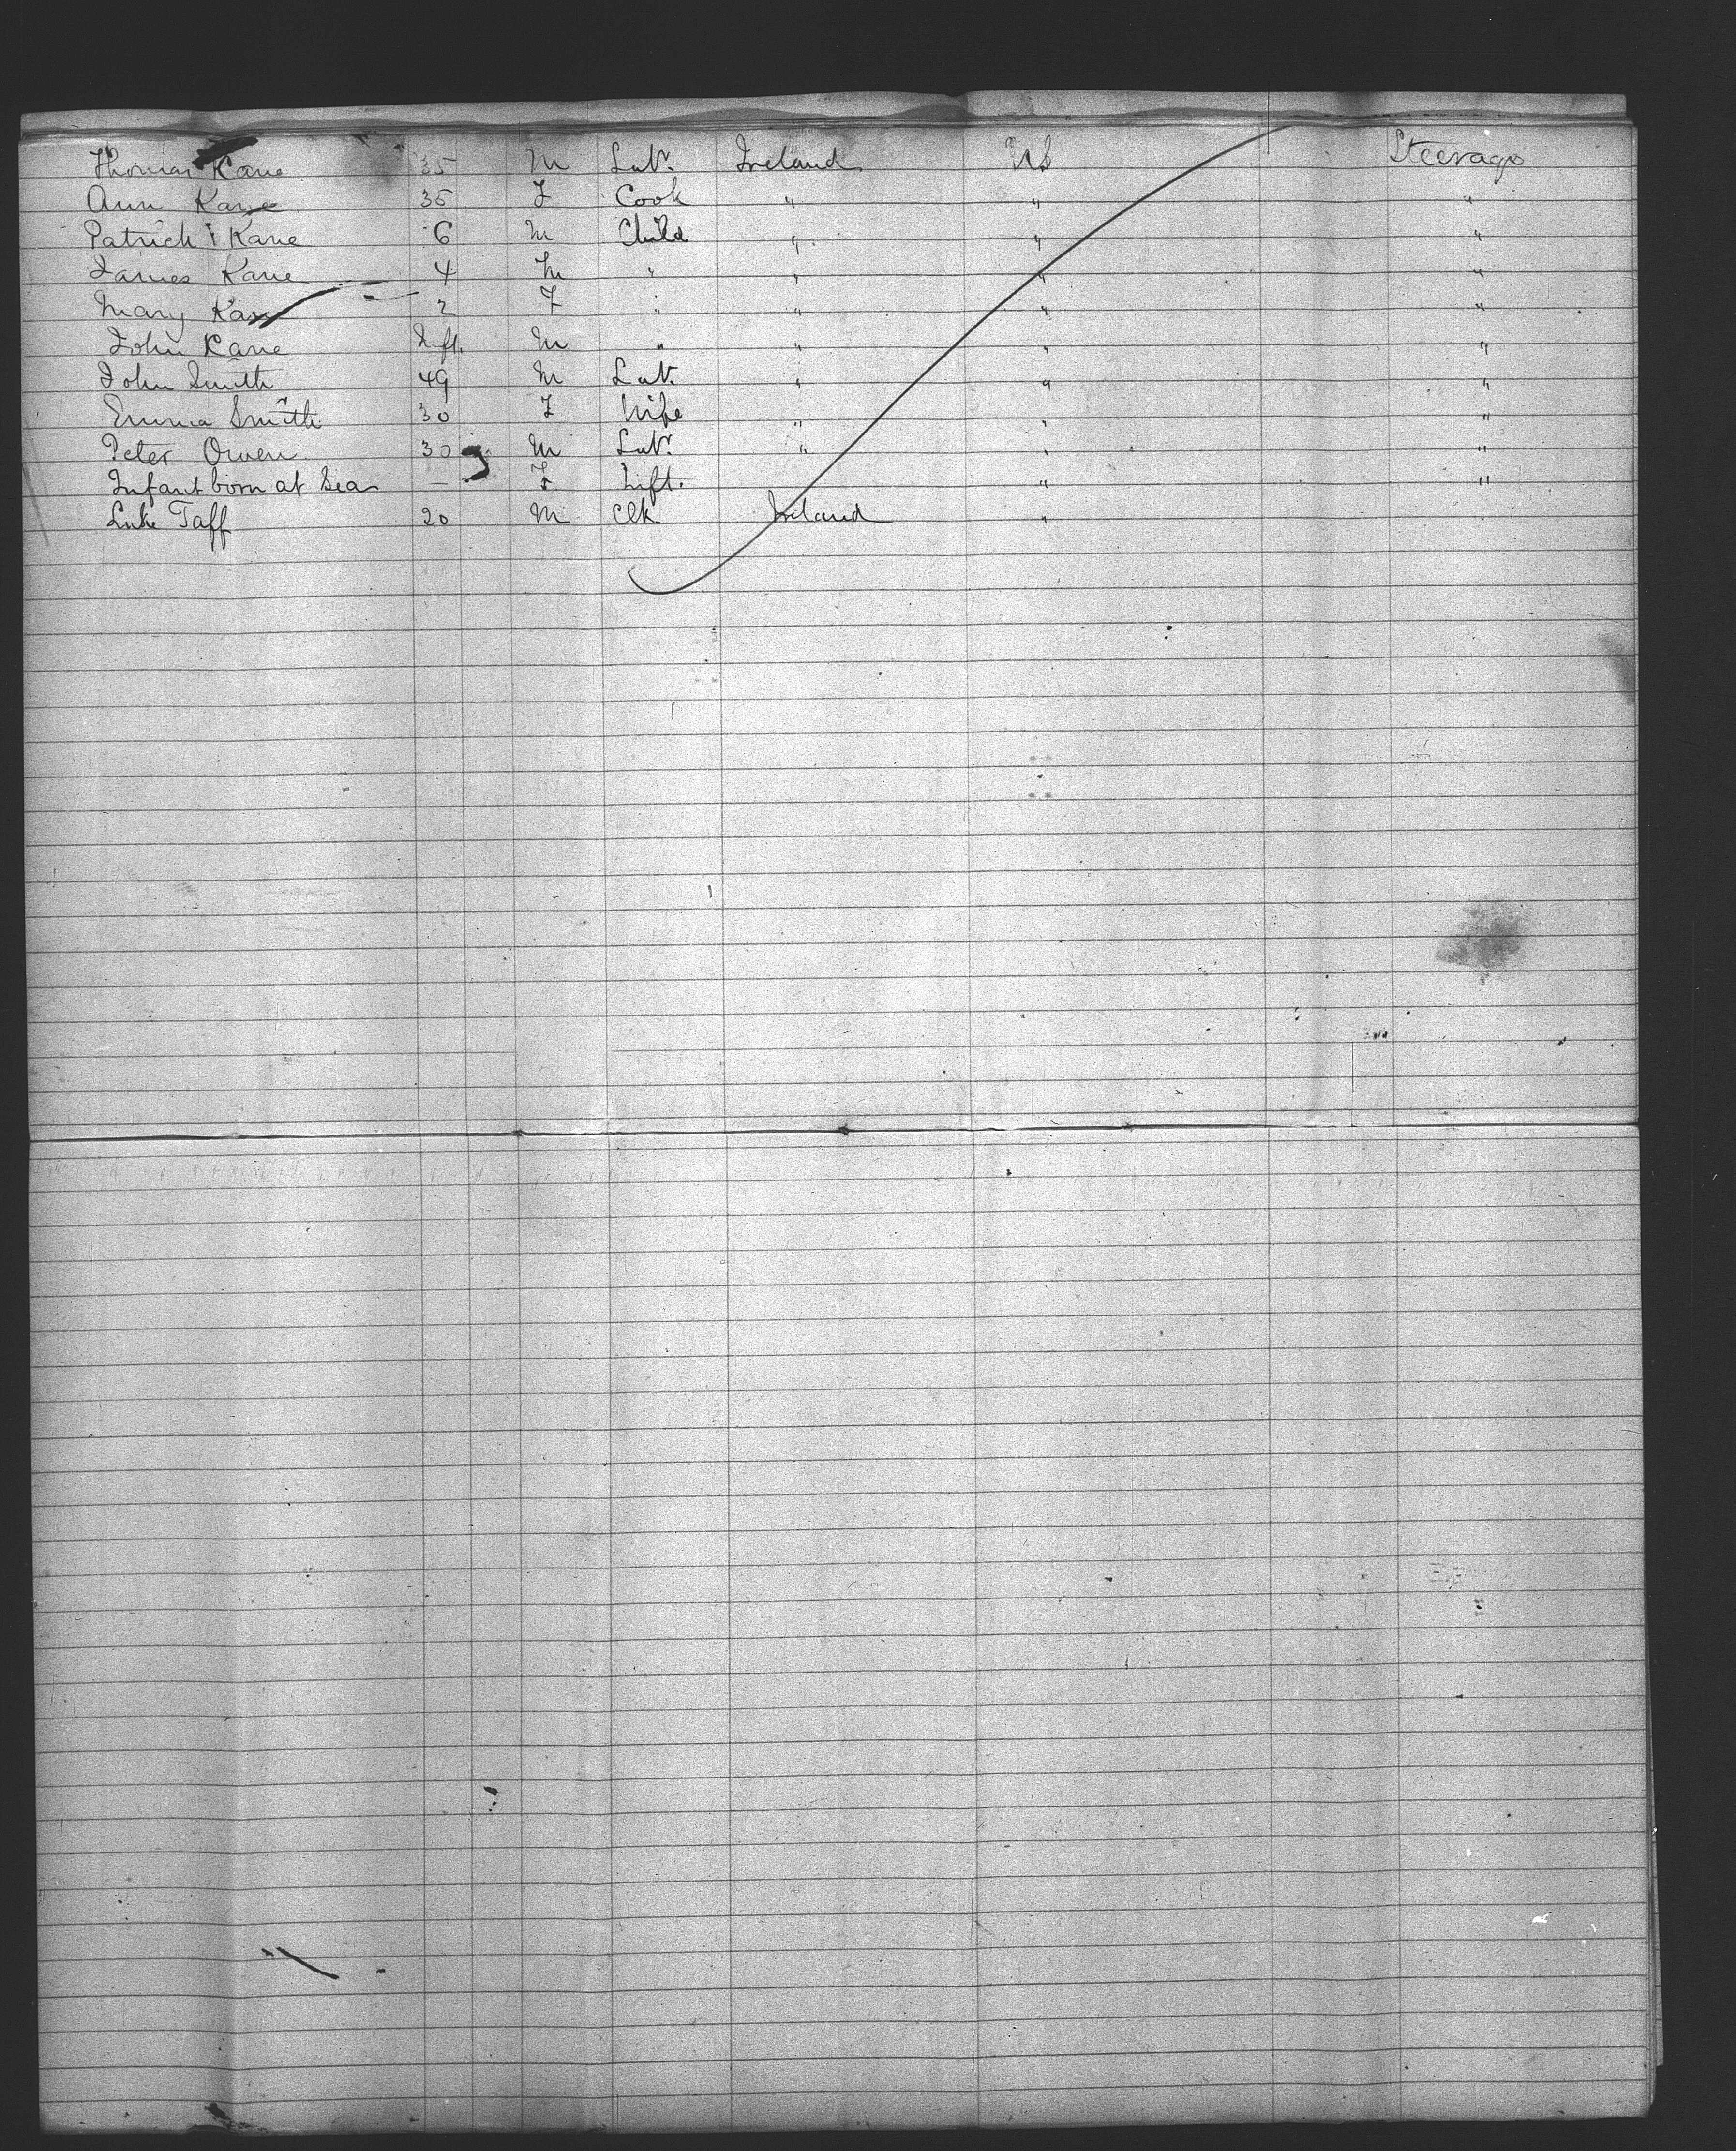 Thomas Kane 35 M Labr. Ireland US Steerage
Ann Kane 35 F Cook " " "
Patrick Kane 6 M Child " " "
James Kane 4 M " " " "
Mary Kane 2 F " " " "
John Kane Inft. M " " " "
John Smith 49 M Labr. " " "
Emma Smith 30 F Wife " " "
Peter Owen 30 M Labr. " " "
Infant born at Sea — F Inft. " "
Luke Taff 20 M Clk Ireland "